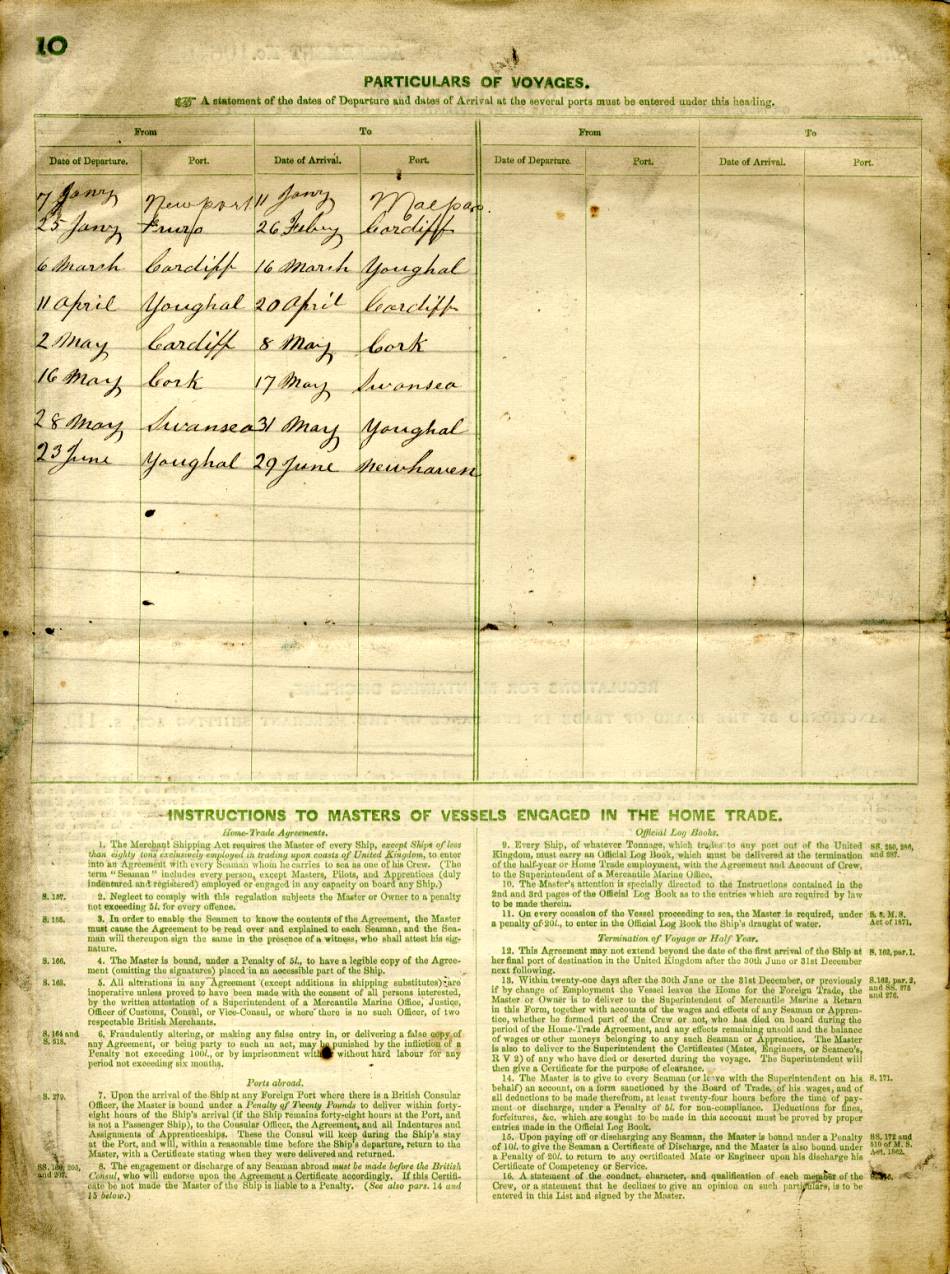 10
PARTICULARS OF VOYAGES.
A statement of the dates of Departure and dates of Arrival at the several ports must be entered under this heading.
From To From To
Date of Departure. Port. Date of Arrival. Port. Date of Departure. Port. Date of Arrival. Port.
7 Jany Newport 11 Jany
25 Jany Truro 26 Feby Cardiff
6 Marsh Cardiff 16 Marsh Youghal
11 April Youghal 20 April Cardiff
2 May Cardiff 8 May Cork
16 May Cork 17 May Swansea
28 May Swansea 31 May Youghal
23 June Youghal 29 June Newhaven
INSTRUCTIONS TO MASTERS OF VESSELS ENGAGED IN THE HOME TRADE.
Home-Trade Agreements.
1. The Merchant Shipping Act requires the Master of every Ship, except Ships of less
than eighty tons exclusively employed in trading upon coasts of United Kingdom, to enter
into an Agreement with every Seaman whom he carries to sea as one of his Crew. (The
term "Seaman" includes every person, except Masters, Pilots, and Apprentices (duly
indentured and registered) employed or engaged in any capacity on board any Ship.)
S. 157. 2. Neglect to comply with this regulation subjects the Master or Owner to a penalty
not exceeding 5l. for every offence.
S. 155. 3. In order to enable the Seamen to know the contents of the Agreement, the Master
must cause the Agreement to be read over and explained to each Seaman, and the Sea-
man will thereupon sign the same in the presence of a witness, who shall attest his sig-
nature.
S. 166. 4. The Master is bound, under a Penalty of 5l., to have a legible copy of the Agree-
ment (omitting the signatures) placed in an accessible part of the Ship.
S. 163. 5. All alterations in any Agreement (except additions in shipping substitutes) are
inoperative unless proved to have been made with the consent of all persons interested,
by the written attestation of a Superintendent of a Mercantile Marine Office, Justice,
Officer of Customs, Consul, or Vice-Consul, or where there is no such Officer, of two
respectable British Merchants.
S. 164 and 6. Fraudulently altering, or making any false entry in, or delivering a false copy of
S. 518. any Agreement, or being party to such an act, may be punished by the infliction of a
Penalty not exceeding 100l., or by imprisonment with or without hard labour for any
period not exceeding six months.
Ports abroad.
S. 279. 7. Upon the arrival of the Ship at any Foreign Port where there is a British Consular
Officer, the Master is bound under a Penalty of Twenty Pounds to deliver within forty-
eight hours of the Ship's arrival (if the Ship remains forty-eight hours at the Port, and
is not a Passenger Ship), to the Consular Officer, the Agreement, and all Indentures and
Assignments of Apprenticeships. These the Consul will keep during the Ship's stay
at the Port, and will, within a reasonable time before the departure, return to the
Master, with a Certificate stating when they were delivered and returned.
8. The engagement or discharge of any Seaman abroad must be made before the British
Consul, who will endorse upon the Agreement a Certificate accordingly. If this Certifi-
cate be not made the Master of the Ship is liable to a Penalty. (See also pars. 14 and
15 below.)
Official Log Books.
9. Every Ship, of whatever Tonnage, which trades to any port out of the United
Kingdom, must carry an Official Log Book, which must be delivered at the termination
of the half-year or Home Trade employment, with the Agreement and Account of Crew,
to the Superintendent of a Mercantile Marine Office.
10. The Master's attention is specially directed to the Instructions contained in the
2nd and 3rd pages of the Official Log Book as to the entries which are required by law
to be made therein.
11. On every occasion of the Vessel proceeding to sea, the Master is required, under S. 5, M. S.
a penalty of 20l., to enter in the Official Log Book the Ship's draught of water. Act of 1871.
Termination of Voyage or Half Year.
12. This Agreement may not extend beyond the date of the first arrival of the Ship at S. 162, par. 1.
her final port of destination in the United Kingdom after the 30th June or 31st December
next following.
13. Within twenty-one days after the 30th June or the 31st December, or previously S. 162, par. 2,
if by change of Employment the Vessel leaves the Home for the Foreign Trade, the and SS. 273
Master or Owner is to deliver to the Superintendent of Mercantile Marine a Return and 276.
in this Form, together with accounts of the wages and effects of any Seaman or Appren-
tice, whether he formed part of the Crew or not, who has died on board during the
period of the Home-Trade Agreement, and any effects remaining unsold and the balance
of wages or other moneys belonging to any such Seaman or Apprentice. The Master
is also to deliver to the Superintendent the Certificates (Mates, Engineers, or Seamen's,
R V 2) of any who have died or deserted during the voyage. The Superintendent will
then give a Certificate for the purpose of clearance.
14. The Master is to give to every Seaman (or leave with the Superintendent on his S. 171.
behalf) an account, on a form sanctioned by the Board of Trade, of his wages, and of
all deductions to be made therefrom, at least twenty-four hours before the time of pay-
ment or discharge, under a Penalty of 5l. for non-compliance. Deductions for fines,
forfeitures, &c. which are sought to be made in this account must be proved by proper
entries made in the Official Log Book.
15. Upon paying off or discharging any Seaman, the Master is bound under a Penalty SS. 172 and
of 10l. to give the Seaman a Certificate of Discharge, and the Master is also bound under
a Penalty of 20l. to return to any certificated Mate or Engineer upon his discharge his Act, 1862.
Certificate of Competency or Service.
16. A statement of the conduct, character, and qualification of each member of the
Crew, or a statement that he declines to give an opinion on such particulars, is to be
entered in this List and signed by the Master.